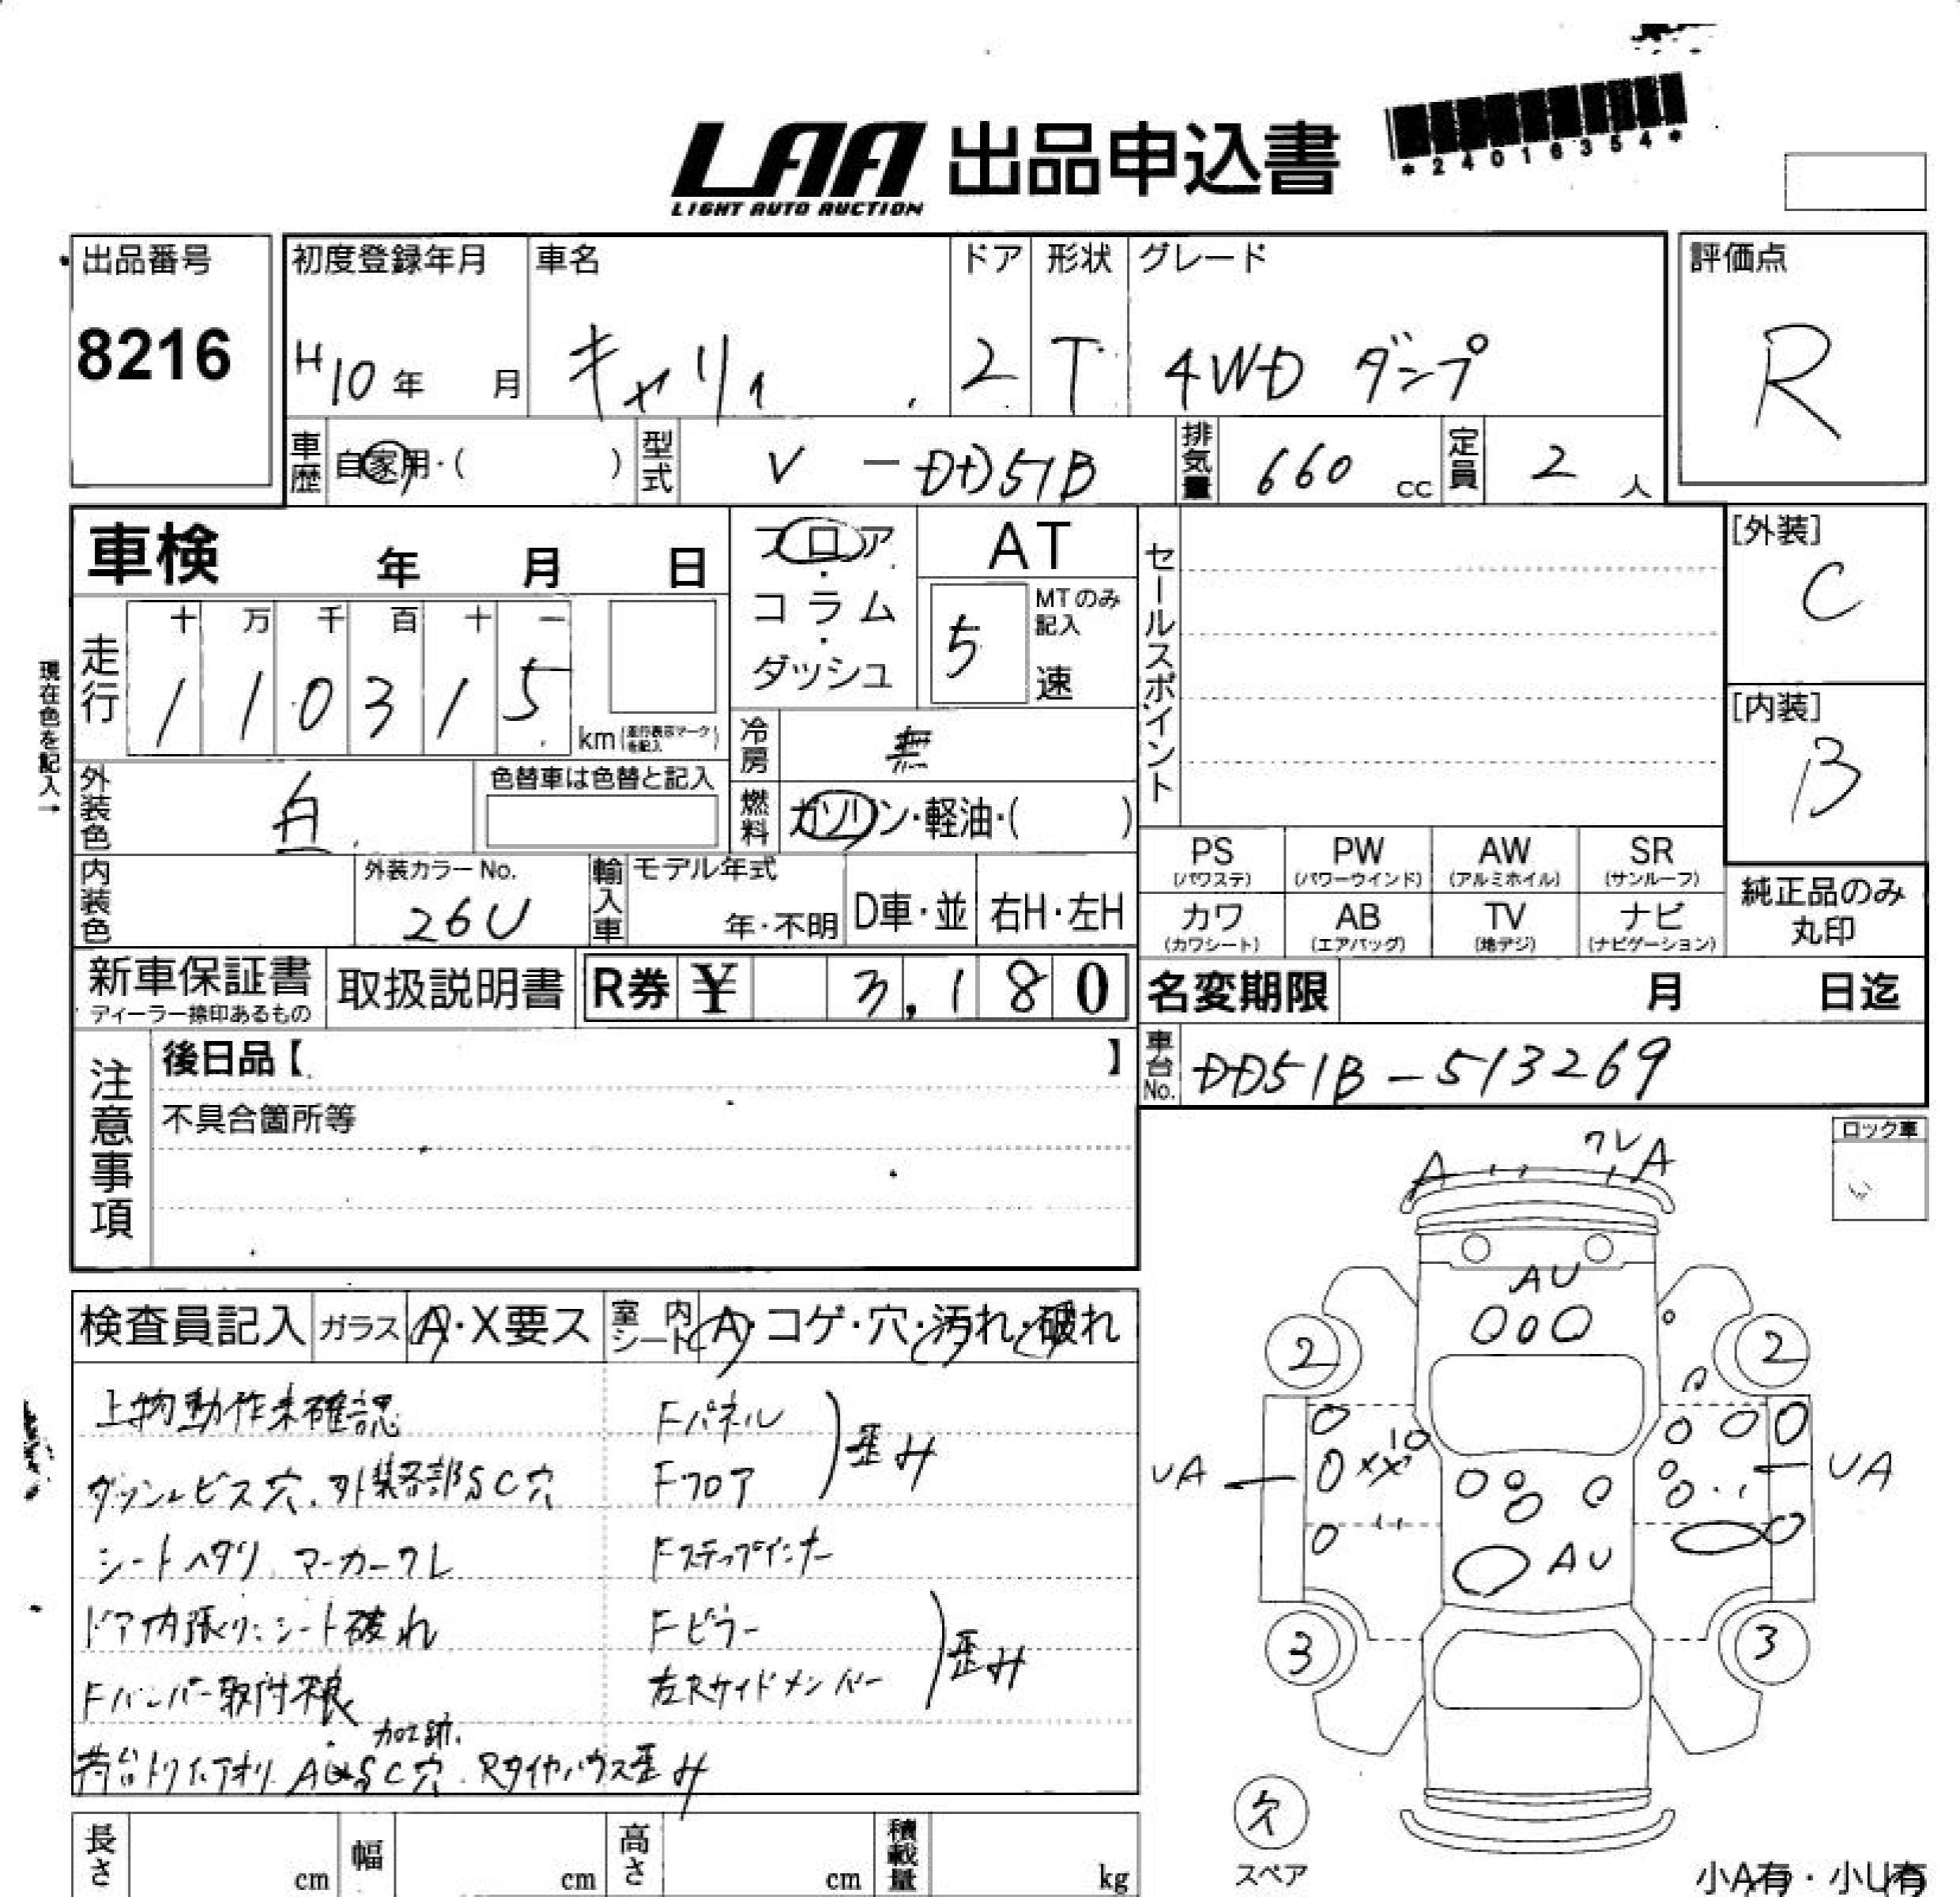 LAA 出品申込書
LIGHT AUTO AUCTION
*24016354*
出品番号 初度登録年月 車名 ドア 形状 グレード 評価点
8216 H10年 月 キャリィ 2 T 4WD ダンプ R
車歴 自家用・( ) 型式 V-DD51B 排気量 660 cc 定員 2 人
車検 年 月 日 フロア・コラム・ダッシュ AT セールスポイント [外装]
C
5 MTのみ記入 速
現在色を記入→
走行 十 万 千 百 十 一
1 1 0 3 1 5 km (走行表示マークを記入)
[内装]
B
冷房 無
外装色 白 色替車は色替と記入 燃料 ガソリン・軽油・( )
PS (パワステ) PW (パワーウインド) AW (アルミホイル) SR (サンルーフ)
内装色 外装カラーNo. 26U 輸入車 モデル年式 年・不明 D車・並 右H・左H
カワ (カワシート) AB (エアバッグ) TV (地デジ) ナビ (ナビゲーション)
純正品のみ
丸印
新車保証書 ディーラー捺印あるもの 取扱説明書 R券 ¥ 3,180 名変期限 月 日迄
注意事項 後日品【 】 車台No. DD51B-513269
不具合箇所等
ロック車
検査員記入 ガラス A・X要ス 室内シート A・コゲ・穴・汚れ・破れ
上物動作未確認 Fパネル
Fフロア )歪み
ダッシュビス穴、外装各部SC穴
シートヘタリ、マーカーワレ Fステップインナー
ドア内張り、シート破れ Fピラー
Fバンパー取付不良 左Rサイドメンバー )歪み
加工跡
荷台トリイ、アオリ AU SC穴 Rタイヤハウス歪み
長さ cm 幅 cm 高さ cm 積載量 kg
A ワレ A
AU
2 2
10
UA XX UA
AU
3 3
欠
スペア
小A有・小U有